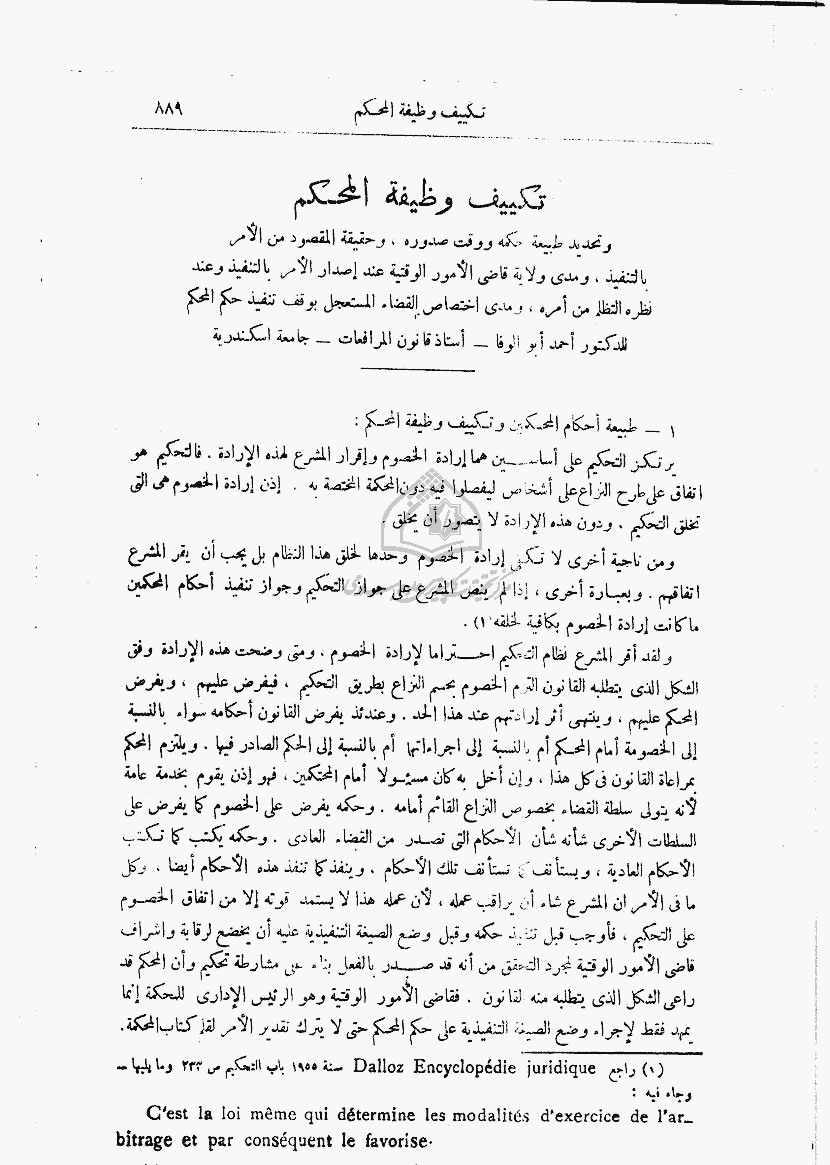 تكييف وظيفة المحكم ٨٨٩
تكييف وظيفة المحكم
وتحديد طبيعة حكمه ووقت صدوره ، وحقيقة المقصود من الأمر
بالتنفيذ ، ومدى ولاية قاضى الأمور الوقتية عند إصدار الأمر بالتنفيذ وعند
نظره التظلم من أمره ، ومدى اختصاص القضاء المستعجل بوقف تنفيذ حكم المحكم
للدكتور أحمد أبو الوفا – أستاذ قانون المرافعات – جامعة اسكندرية
١ – طبيعة أحكام المحكمين وتكييف وظيفة المحكم :
يرتكز التحكيم على أساسين هما إرادة الخصوم وإقرار المشرع لهذه الإرادة . فالتحكيم هو
اتفاق على طرح النزاع على أشخاص ليفصلوا فيه دون المحكمة المختصة به . إذن إرادة الخصوم هى التى
تخلق التحكيم . ودون هذه الإرادة لا يتصور أن يخلق .
ومن ناحية أخرى لا تكفى إرادة الخصوم وحدها لخلق هذا النظام بل يجب أن يقر المشرع
اتفاقهم . وبعبارة أخرى ، إذا لم ينص المشرع على جواز التحكيم وجواز تنفيذ أحكام المحكمين
ما كانت إرادة الخصوم بكافية لخلقه (١) .
ولقد أقر المشرع نظام التحكيم احتراما لإرادة الخصوم ، ومتى وضحت هذه الإرادة وفق
الشكل الذى يتطلبه القانون التزم الخصوم بحسم النزاع بطريق التحكيم ، فيفرض عليهم ، ويفرض
المحكم عليهم ، وينتهى أثر إرادتهم عند هذا الحد . وعندئذ يفرض القانون أحكامه سواء بالنسبة
إلى الخصومة أمام المحكم أم بالنسبة إلى اجراءاتها أم بالنسبة إلى الحكم الصادر فيها . ويلتزم المحكم
بمراعاة القانون فى كل هذا ، وإن أخل به كان مسئولا أمام المحتكمين ، فهو إذن يقوم بخدمة عامة
لأنه يتولى سلطة القضاء بخصوص النزاع القائم أمامه . وحكمه يفرض على الخصوم كما يفرض على
السلطات الأخرى شأنه شأن الأحكام التى تصدر من القضاء العادى . وحكمه يكتب كما تكتب
الأحكام العادية ، ويستأنف كما تستأنف تلك الأحكام ، وينفذ كما تنفذ هذه الأحكام أيضا ، وكل
ما فى الأمر ان المشرع شاء أن يراقب عمله ، لأن عمله هذا لا يستمد قوته إلا من اتفاق الخصوم
على التحكيم ، فأوجب قبل تنفيذ حكمه وقبل وضع الصيغة التنفيذية عليه أن يخضع لرقابة واشراف
قاضى الأمور الوقتية لمجرد التحقق من أنه قد صدر بالفعل بناء على مشارطة تحكيم وأن المحكم قد
راعى الشكل الذى يتطلبه منه القانون . فقاضى الأمور الوقتية وهو الرئيس الإدارى للمحكمة إنما
يمهد فقط لإجراء وضع الصيغة التنفيذية على حكم المحكم حتى لا يترك تقدير الأمر لقلم كتاب المحكمة .
(١) راجع Dalloz Encyclopédie juridique سنة ١٩٥٥ باب التحكيم ص ٢٣٣ وما يليها –
وجاء فيه :
C'est la loi même qui détermine les modalités d'exercice de l'ar-
bitrage et par conséquent le favorise.